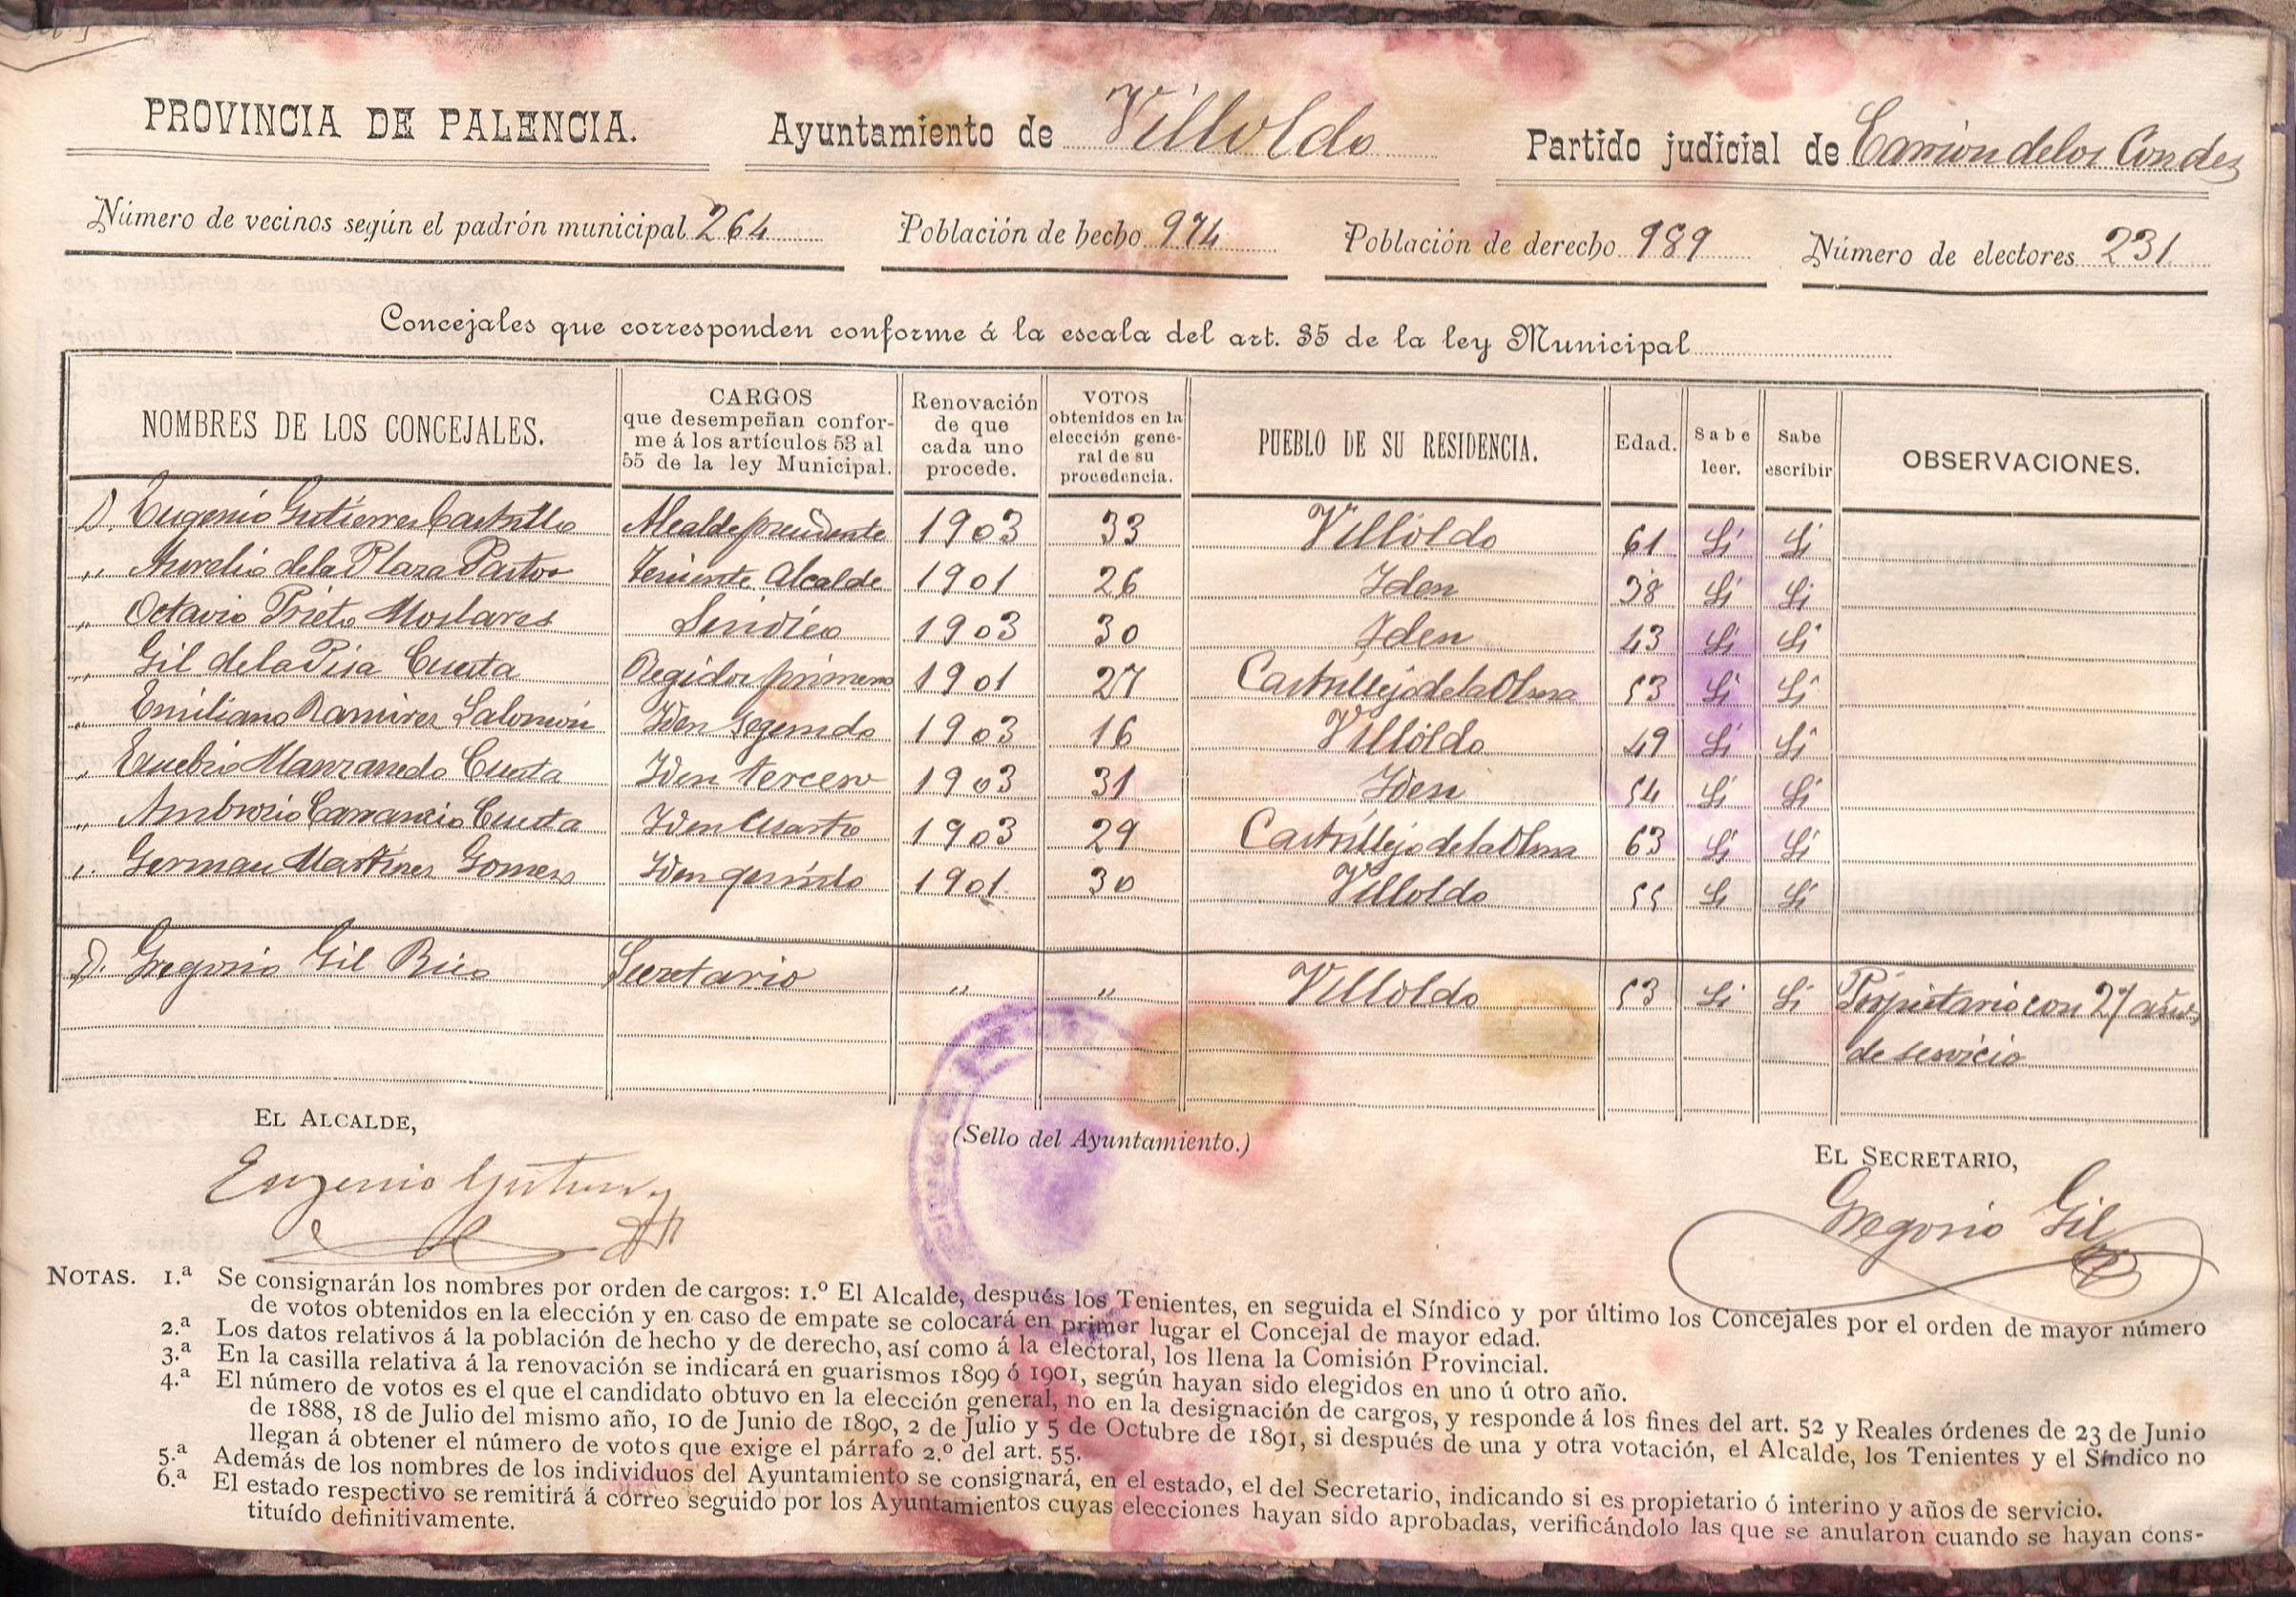 PROVINCIA DE PALENCIA. Ayuntamiento de Villoldo Partido judicial de Carrion de los Condes
Número de vecinos según el padrón municipal 264 Población de hecho 974 Población de derecho 989 Número de electores 231
Concejales que corresponden conforme á la escala del art. 35 de la ley Municipal
NOMBRES DE LOS CONCEJALES. CARGOS que desempeñan confor-me á los artículos 53 al 55 de la ley Municipal. Renovación de que cada uno procede. VOTOS obtenidos en la elección gene-ral de su procedencia. PUEBLO DE SU RESIDENCIA. Edad. Sabe leer. Sabe escribir OBSERVACIONES.
D. Eugenio Gutierres Castrillo Alcalde presidente 1903 33 Villoldo 61 Si Si
" Aurelio de la Plaza Pastor Teniente Alcalde 1901 26 Iden 38 Si Si
" Octavio Prieto Moslares Sindico 1903 30 Iden 43 Si Si
" Gil de la Pisa Cuesta Regidor primero 1901 27 Castrillejo de la Olma 53 Si Si
" Emiliano Ramires Salomón Iden Segundo 1903 16 Villoldo 49 Si Si
" Eusebio Manzanedo Cuesta Iden tercero 1903 31 Iden 54 Si Si
" Ambrosio Carrancio Cuesta Iden Cuarto 1903 29 Castrillejo de la Olma 63 Si Si
" German Martines Gomes Iden quinto 1901 30 Villoldo 55 Si Si
D. Gregorio Gil Rico Secretario " " Villoldo 53 Si Si Porpietario con 27 años
de servicio
EL ALCALDE, (Sello del Ayuntamiento.) EL SECRETARIO,
Eugenio Gutierrez Gregorio Gil
NOTAS. 1.ª Se consignarán los nombres por orden de cargos: 1.º El Alcalde, después los Tenientes, en seguida el Síndico y por último los Concejales por el orden de mayor número
de votos obtenidos en la elección y en caso de empate se colocará en primer lugar el Concejal de mayor edad.
2.ª Los datos relativos á la población de hecho y de derecho, así como á la electoral, los llena la Comisión Provincial.
3.ª En la casilla relativa á la renovación se indicará en guarismos 1899 ó 1901, según hayan sido elegidos en uno ú otro año.
4.ª El número de votos es el que el candidato obtuvo en la elección general, no en la designación de cargos, y responde á los fines del art. 52 y Reales órdenes de 23 de Junio
de 1888, 18 de Julio del mismo año, 10 de Junio de 1890, 2 de Julio y 5 de Octubre de 1891, si después de una y otra votación, el Alcalde, los Tenientes y el Síndico no
llegan á obtener el número de votos que exige el párrafo 2.º del art. 55.
5.ª Además de los nombres de los individuos del Ayuntamiento se consignará, en el estado, el del Secretario, indicando si es propietario ó interino y años de servicio.
6.ª El estado respectivo se remitirá á correo seguido por los Ayuntamientos cuyas elecciones hayan sido aprobadas, verificándolo las que se anularon cuando se hayan cons-
tituído definitivamente.